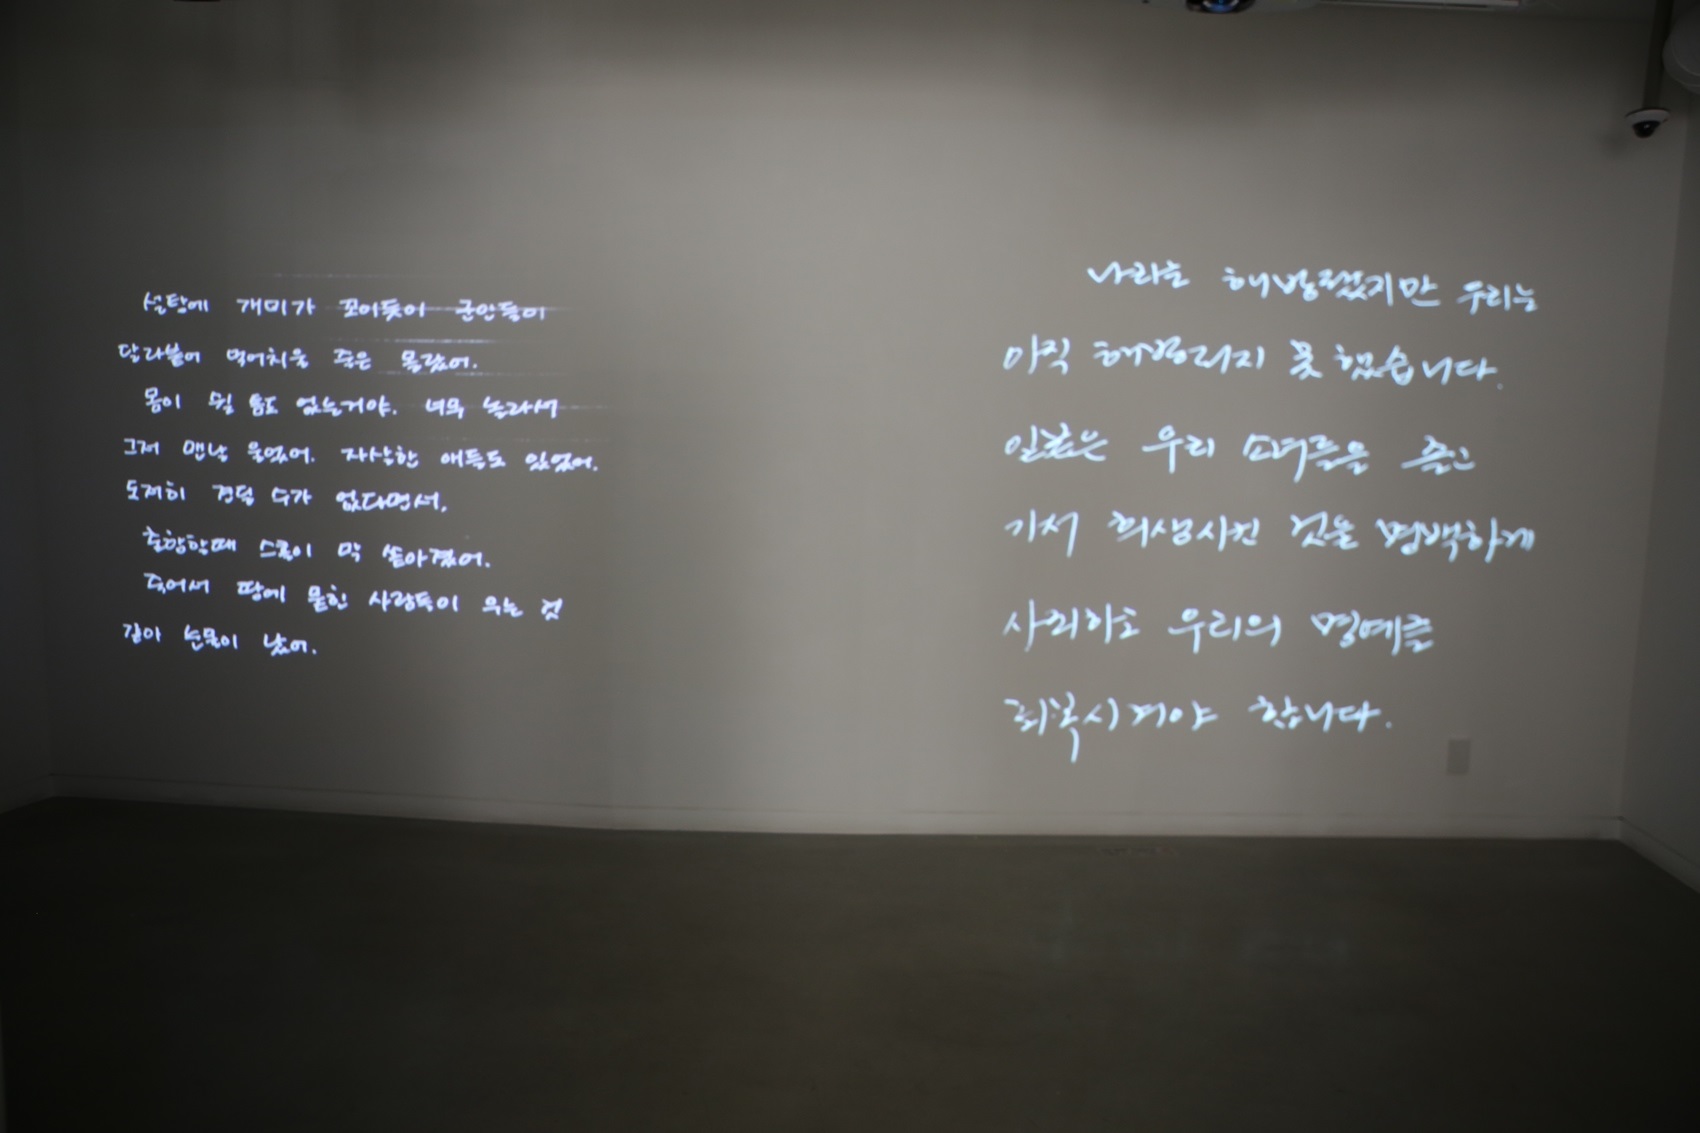 설탕에 개미가 꼬이듯이 군인들이
달라붙어 먹어치울 줄은 몰랐어.
몸이 쉴 틈도 없는거야. 너무 놀라서
그저 맨날 울었어. 자살한 애들도 있었어.
도저히 견딜 수가 없다면서.
출항할때 스콜이 막 쏟아졌어.
죽어서 땅에 묻힌 사람들이 우는 것
같아 눈물이 났어.
나라는 해방됐지만 우리는
아직 해방되지 못 했습니다.
일본은 우리 소녀들을 끌고
가서 희생시킨 것을 명백하게
사죄하고 우리의 명예를
회복시켜야 합니다.